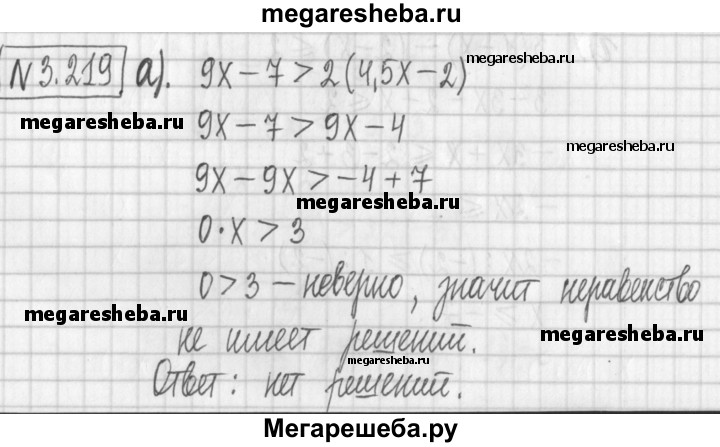 megaresheba.ru
N 3.219 а). 9x − 7 > 2(4,5x − 2)
megaresheba.ru
megaresheba.ru
9x − 7 > 9x − 4
megaresheba.ru
9x − 9x > −4 + 7
megaresheba.ru
0·x > 3
0 > 3 − неверно, значит неравенство
megaresheba.ru
не имеет решений.
megaresheba.ru
megaresheba.ru
Ответ: нет решений.
Мегарешеба.ру